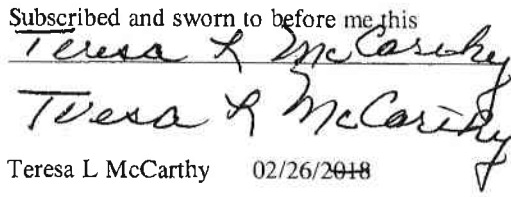 Subscribed and sworn to before me this
Teresa L McCarthy
Teresa L McCarthy
Teresa L McCarthy 02/26/2018